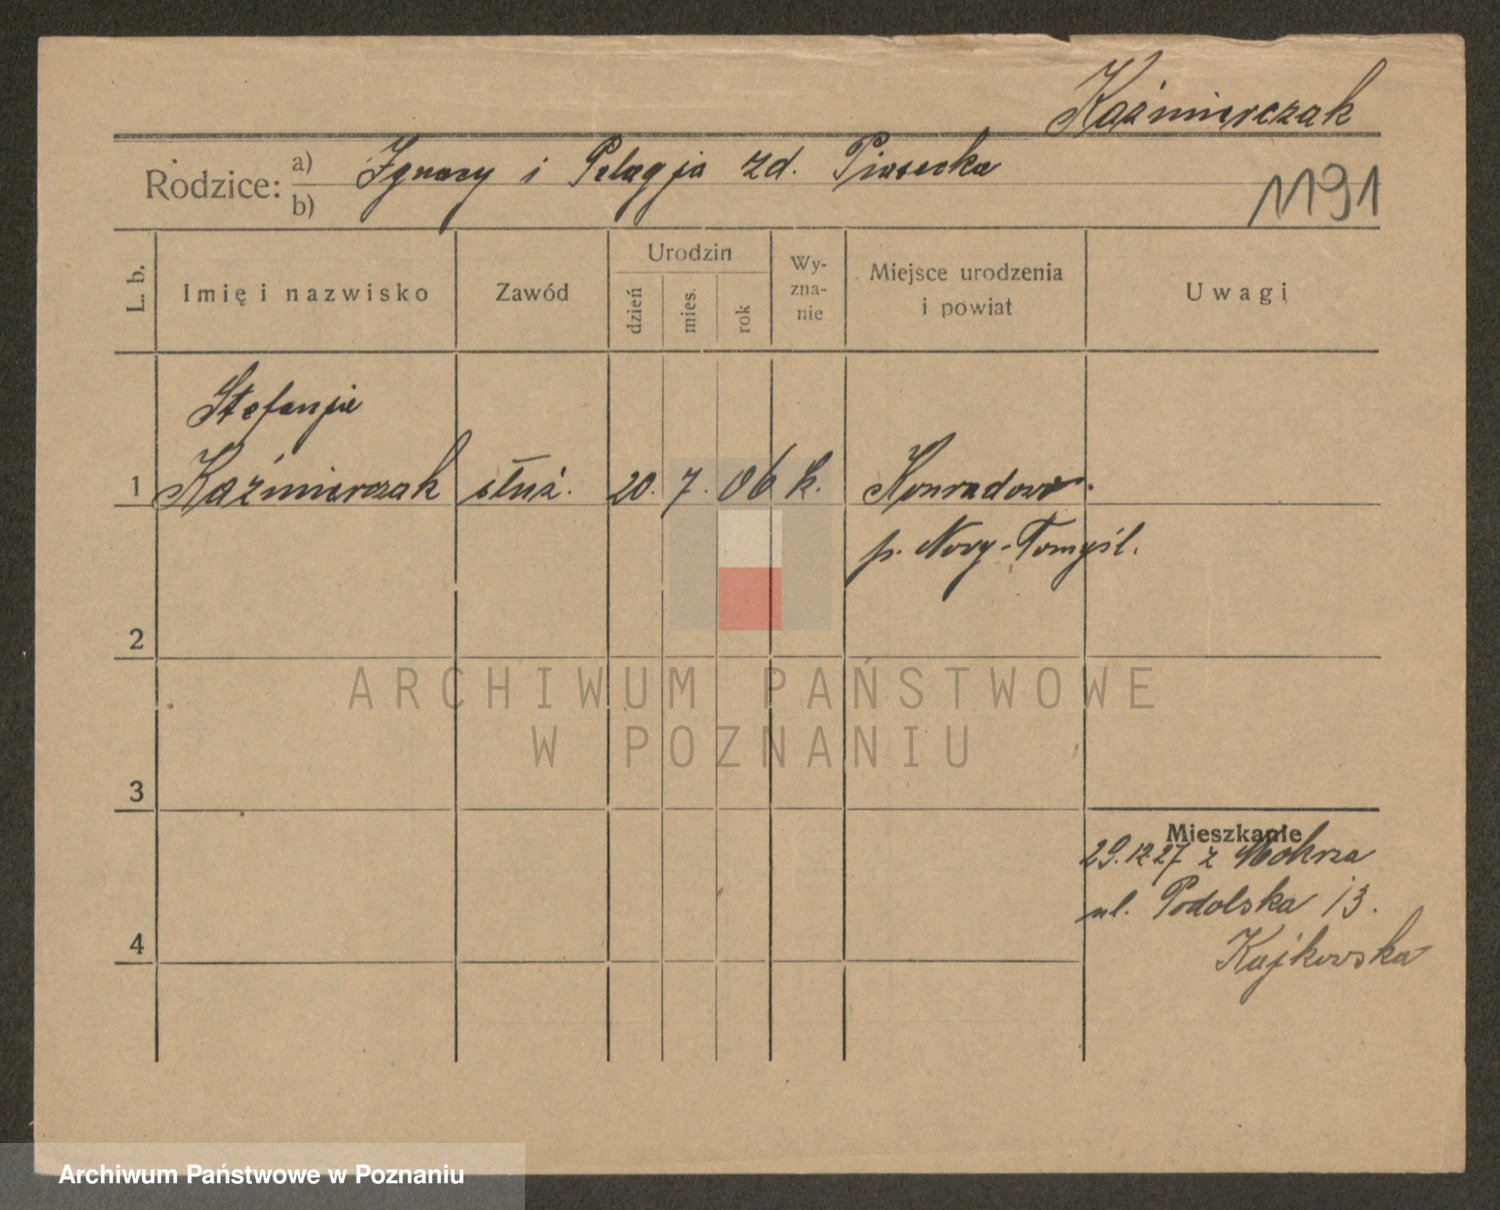 Kaźmierczak
Rodzice: a) b) Ignacy i Pelagja zd. Piasecka
1191
L. b.
Imię i nazwisko
Zawód
Urodzin
dzień
mies.
rok
Wy-
zna-
nie
Miejsce urodzenia
i powiat
Uwagi
Stefanja
1 Kaźmierczak służ. 20. 7. 06 k. Konradowo.
p. Nowy-Tomyśl.
2
ARCHIWUM PAŃSTWOWE
W POZNANIU
3
Mieszkanie
29.12 27 z Mokrza
ul. Podolska 13.
Kajkowska
4
Archiwum Państwowe w Poznaniu